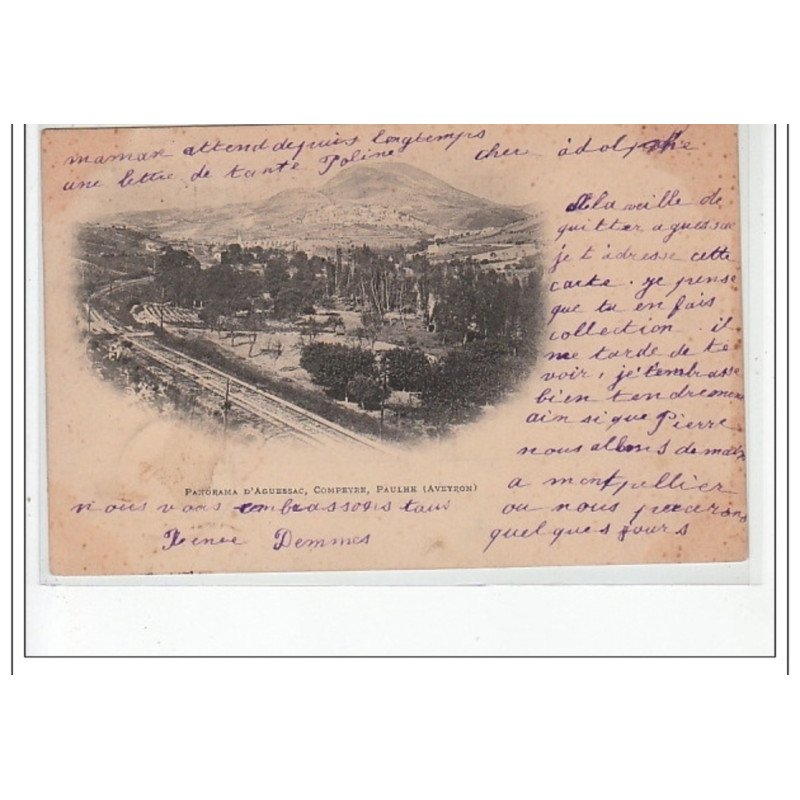 maman attend depuis longtemps
une lettre de tante Poline
cher adolphe
A la veille de
quitter aguessac
je t'adresse cette
carte. je pense
que tu en fais
collection. il
me tarde de te
voir, je t'embrasse
bien tendrement
ain si que Pierre
nous allons demain
a montpellier
ou nous passerons
quelques jours
PANORAMA D'AGUESSAC, COMPEYRE, PAULHE (AVEYRON)
nous vous embrassons tous
Demmes